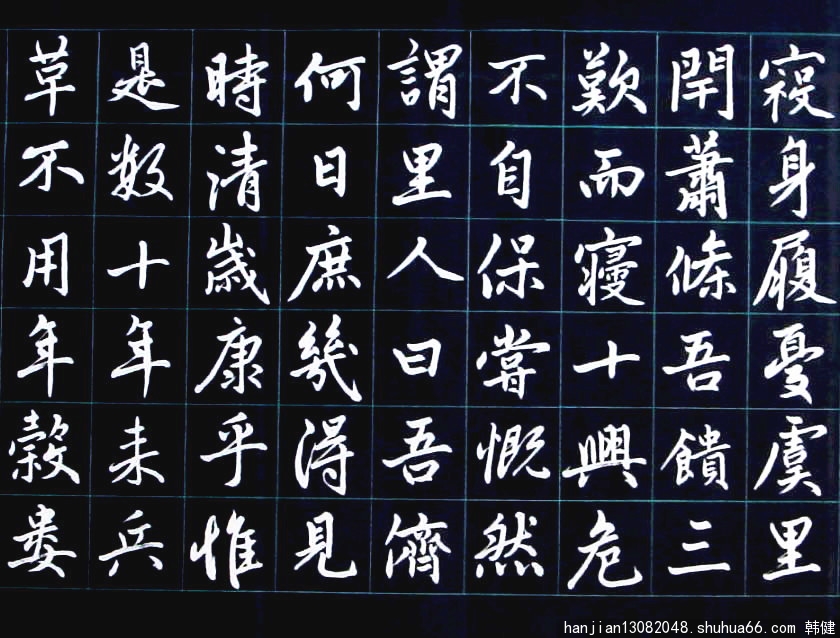 身履憂虞里
閈蕭條吾饋三
歎而寢十興危
不自保嘗慨然
謂里人曰吾儕
何日庶幾得見
時清歲康乎惟
是数十年来兵
草不用年穀婁
hanjian13082048.shuhua66.com 韩健